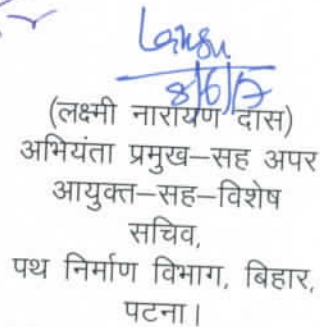 8/6/17
(लक्ष्मी नारायण दास)
अभियंता प्रमुख–सह अपर
आयुक्त–सह–विशेष
सचिव,
पथ निर्माण विभाग, बिहार,
पटना।